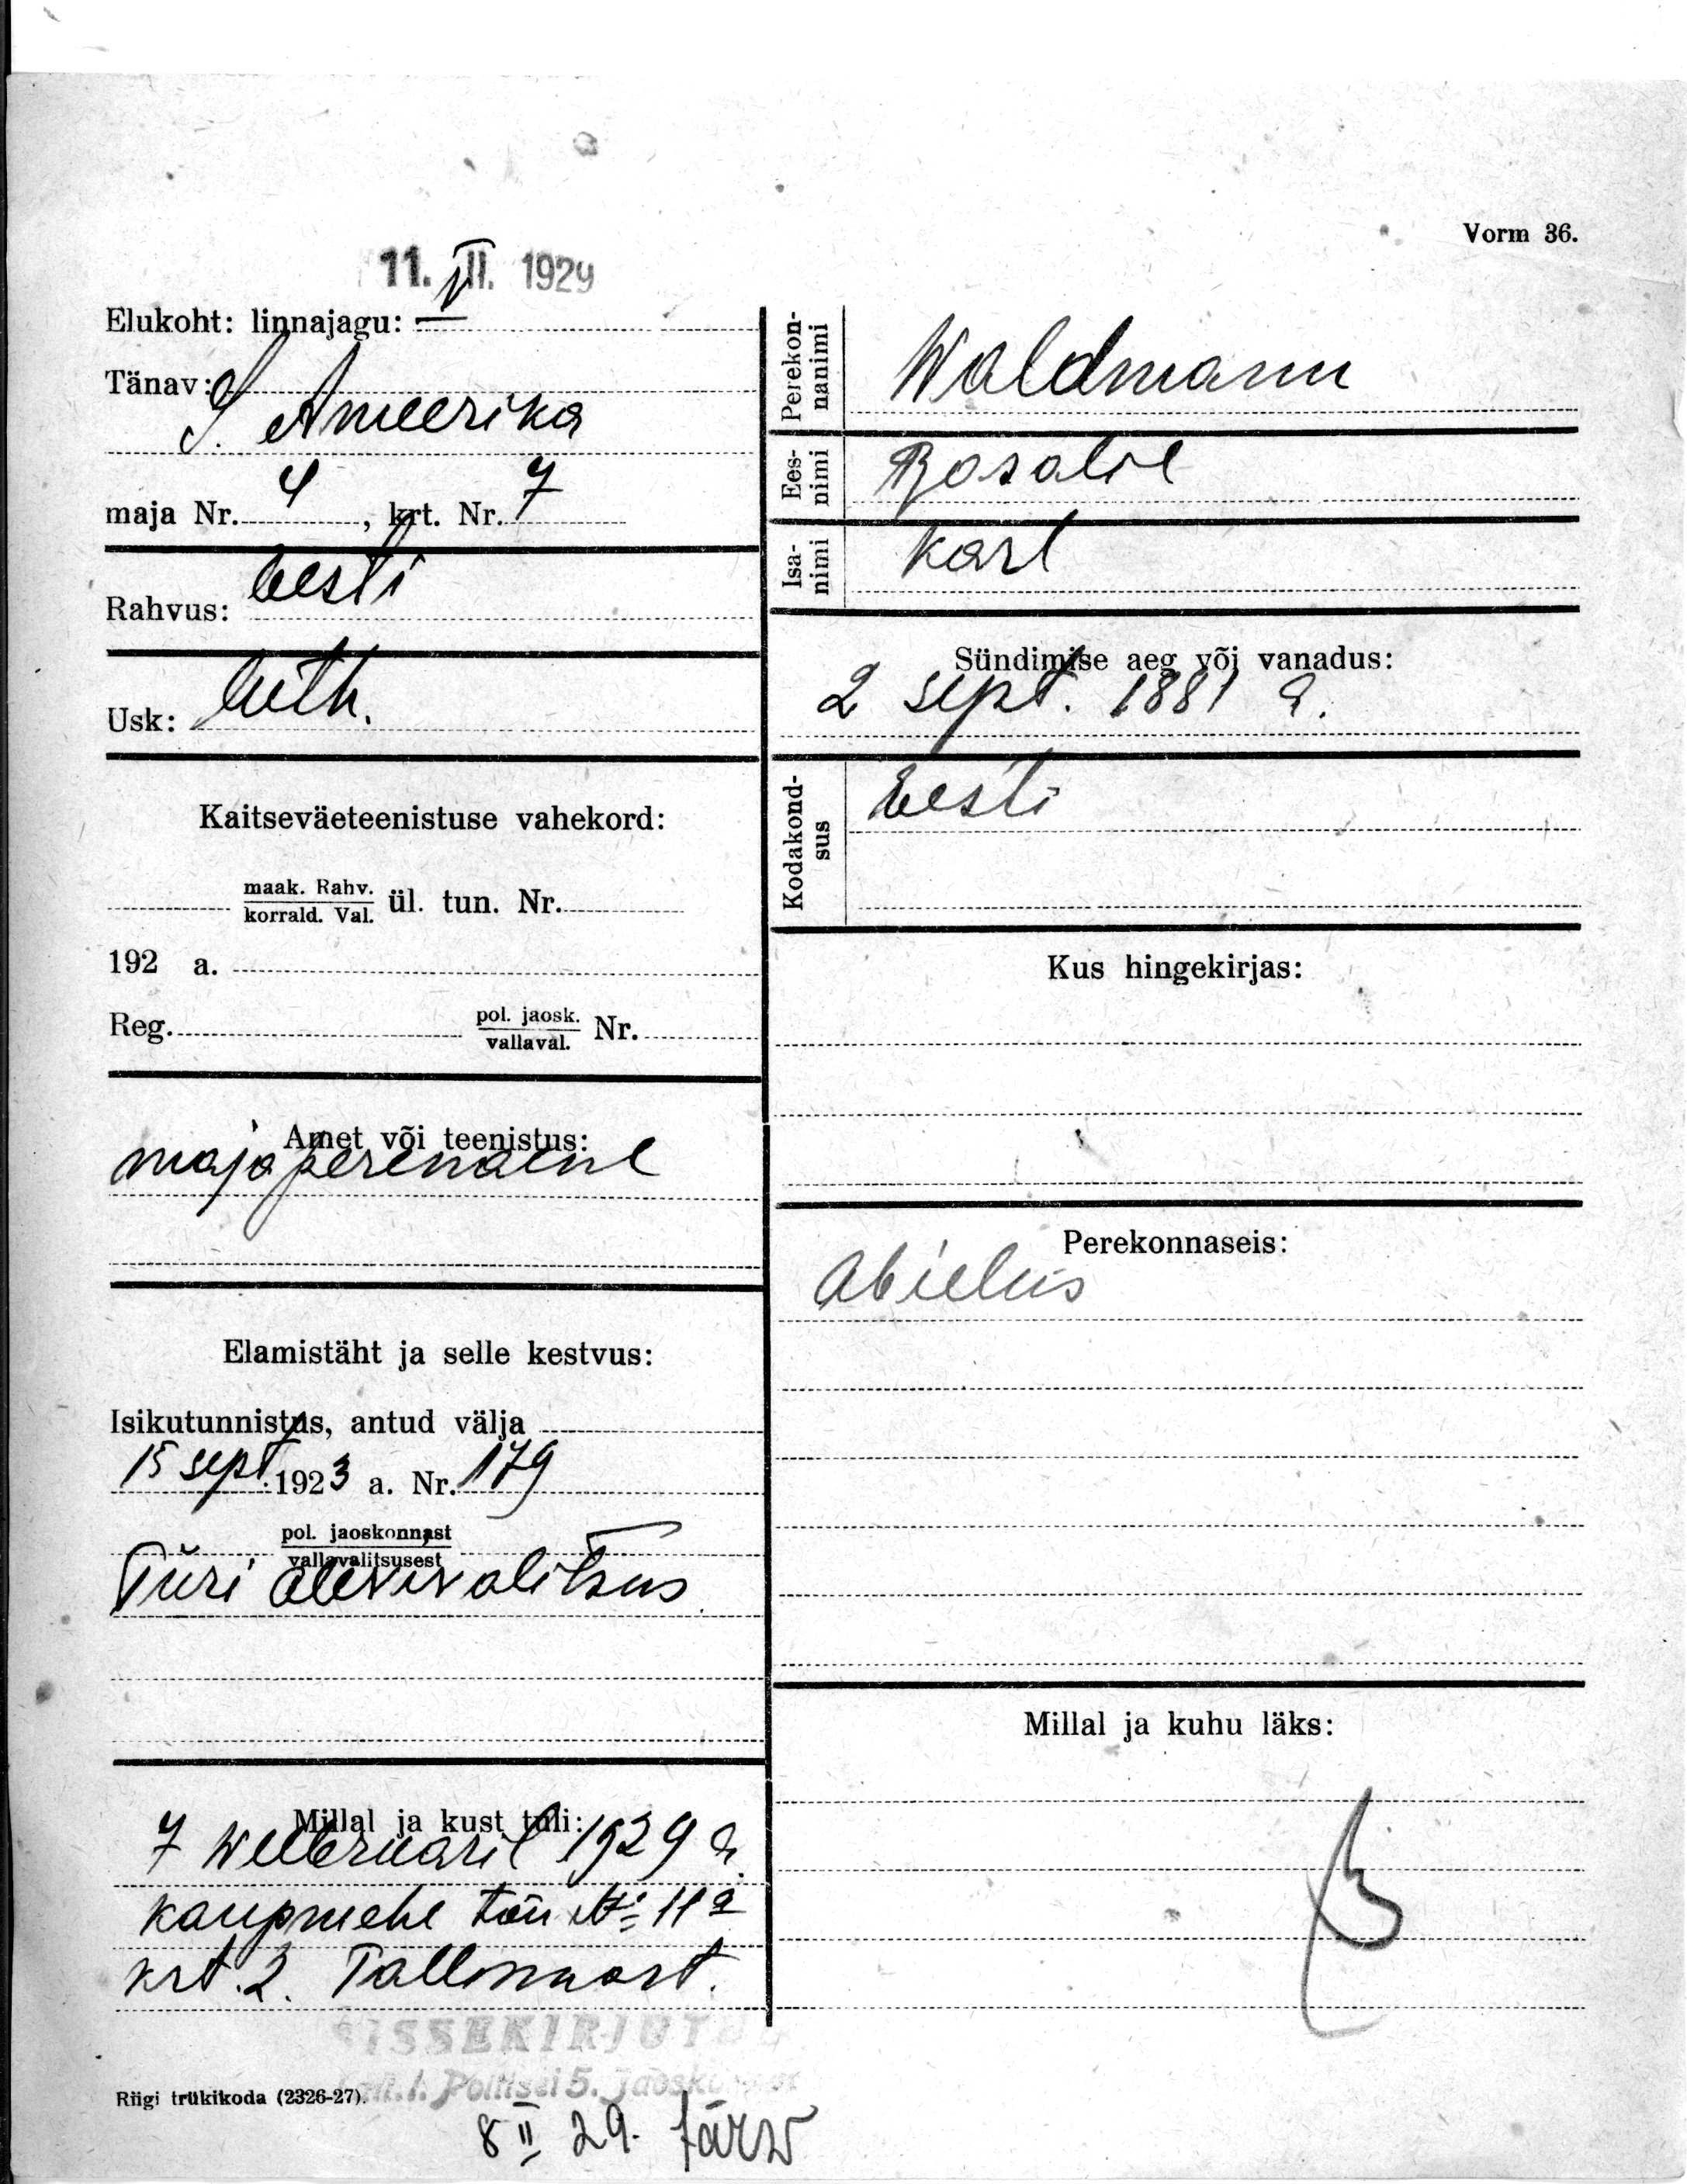 Vorm 36.
11. VII. 1929
Elukoht: linnajagu:
Tänav: S. Ameerika
maja Nr. 4, krt. Nr. 7
Rahvus: Eesti
Usk: luth.
Kaitseväeteenistuse vahekord:
maak. Rahv.
korrald. Val. ül. tun. Nr.
192 a.
Reg. pol. jaosk.
vallaval. Nr.
Amet või teenistus:
majaperenaene
Elamistäht ja selle kestvus:
Isikutunnistus, antud välja
15 sept. 1923 a. Nr. 179
pol. jaoskonnast
vallavalitsusest
Türi alevivalitsus
Millal ja kust tuli:
7 weebruaril 1929 a.
kaupmehe tän № 11a
krt. 2. Tallinnast.
Perekon-
nanimi
Waldmann
Ees-
nimi
Rosalie
Isa-
nimi
Karl
Sündimise aeg või vanadus:
2 sept. 1881 a.
Kodakond-
sus
Eesti
Kus hingekirjas:
Perekonnaseis:
abielus
Millal ja kuhu läks:
SISSEKIRJUT
Politsei 5. jaosk
Riigi trükikoda (2326-27).
8 II 29. Järw